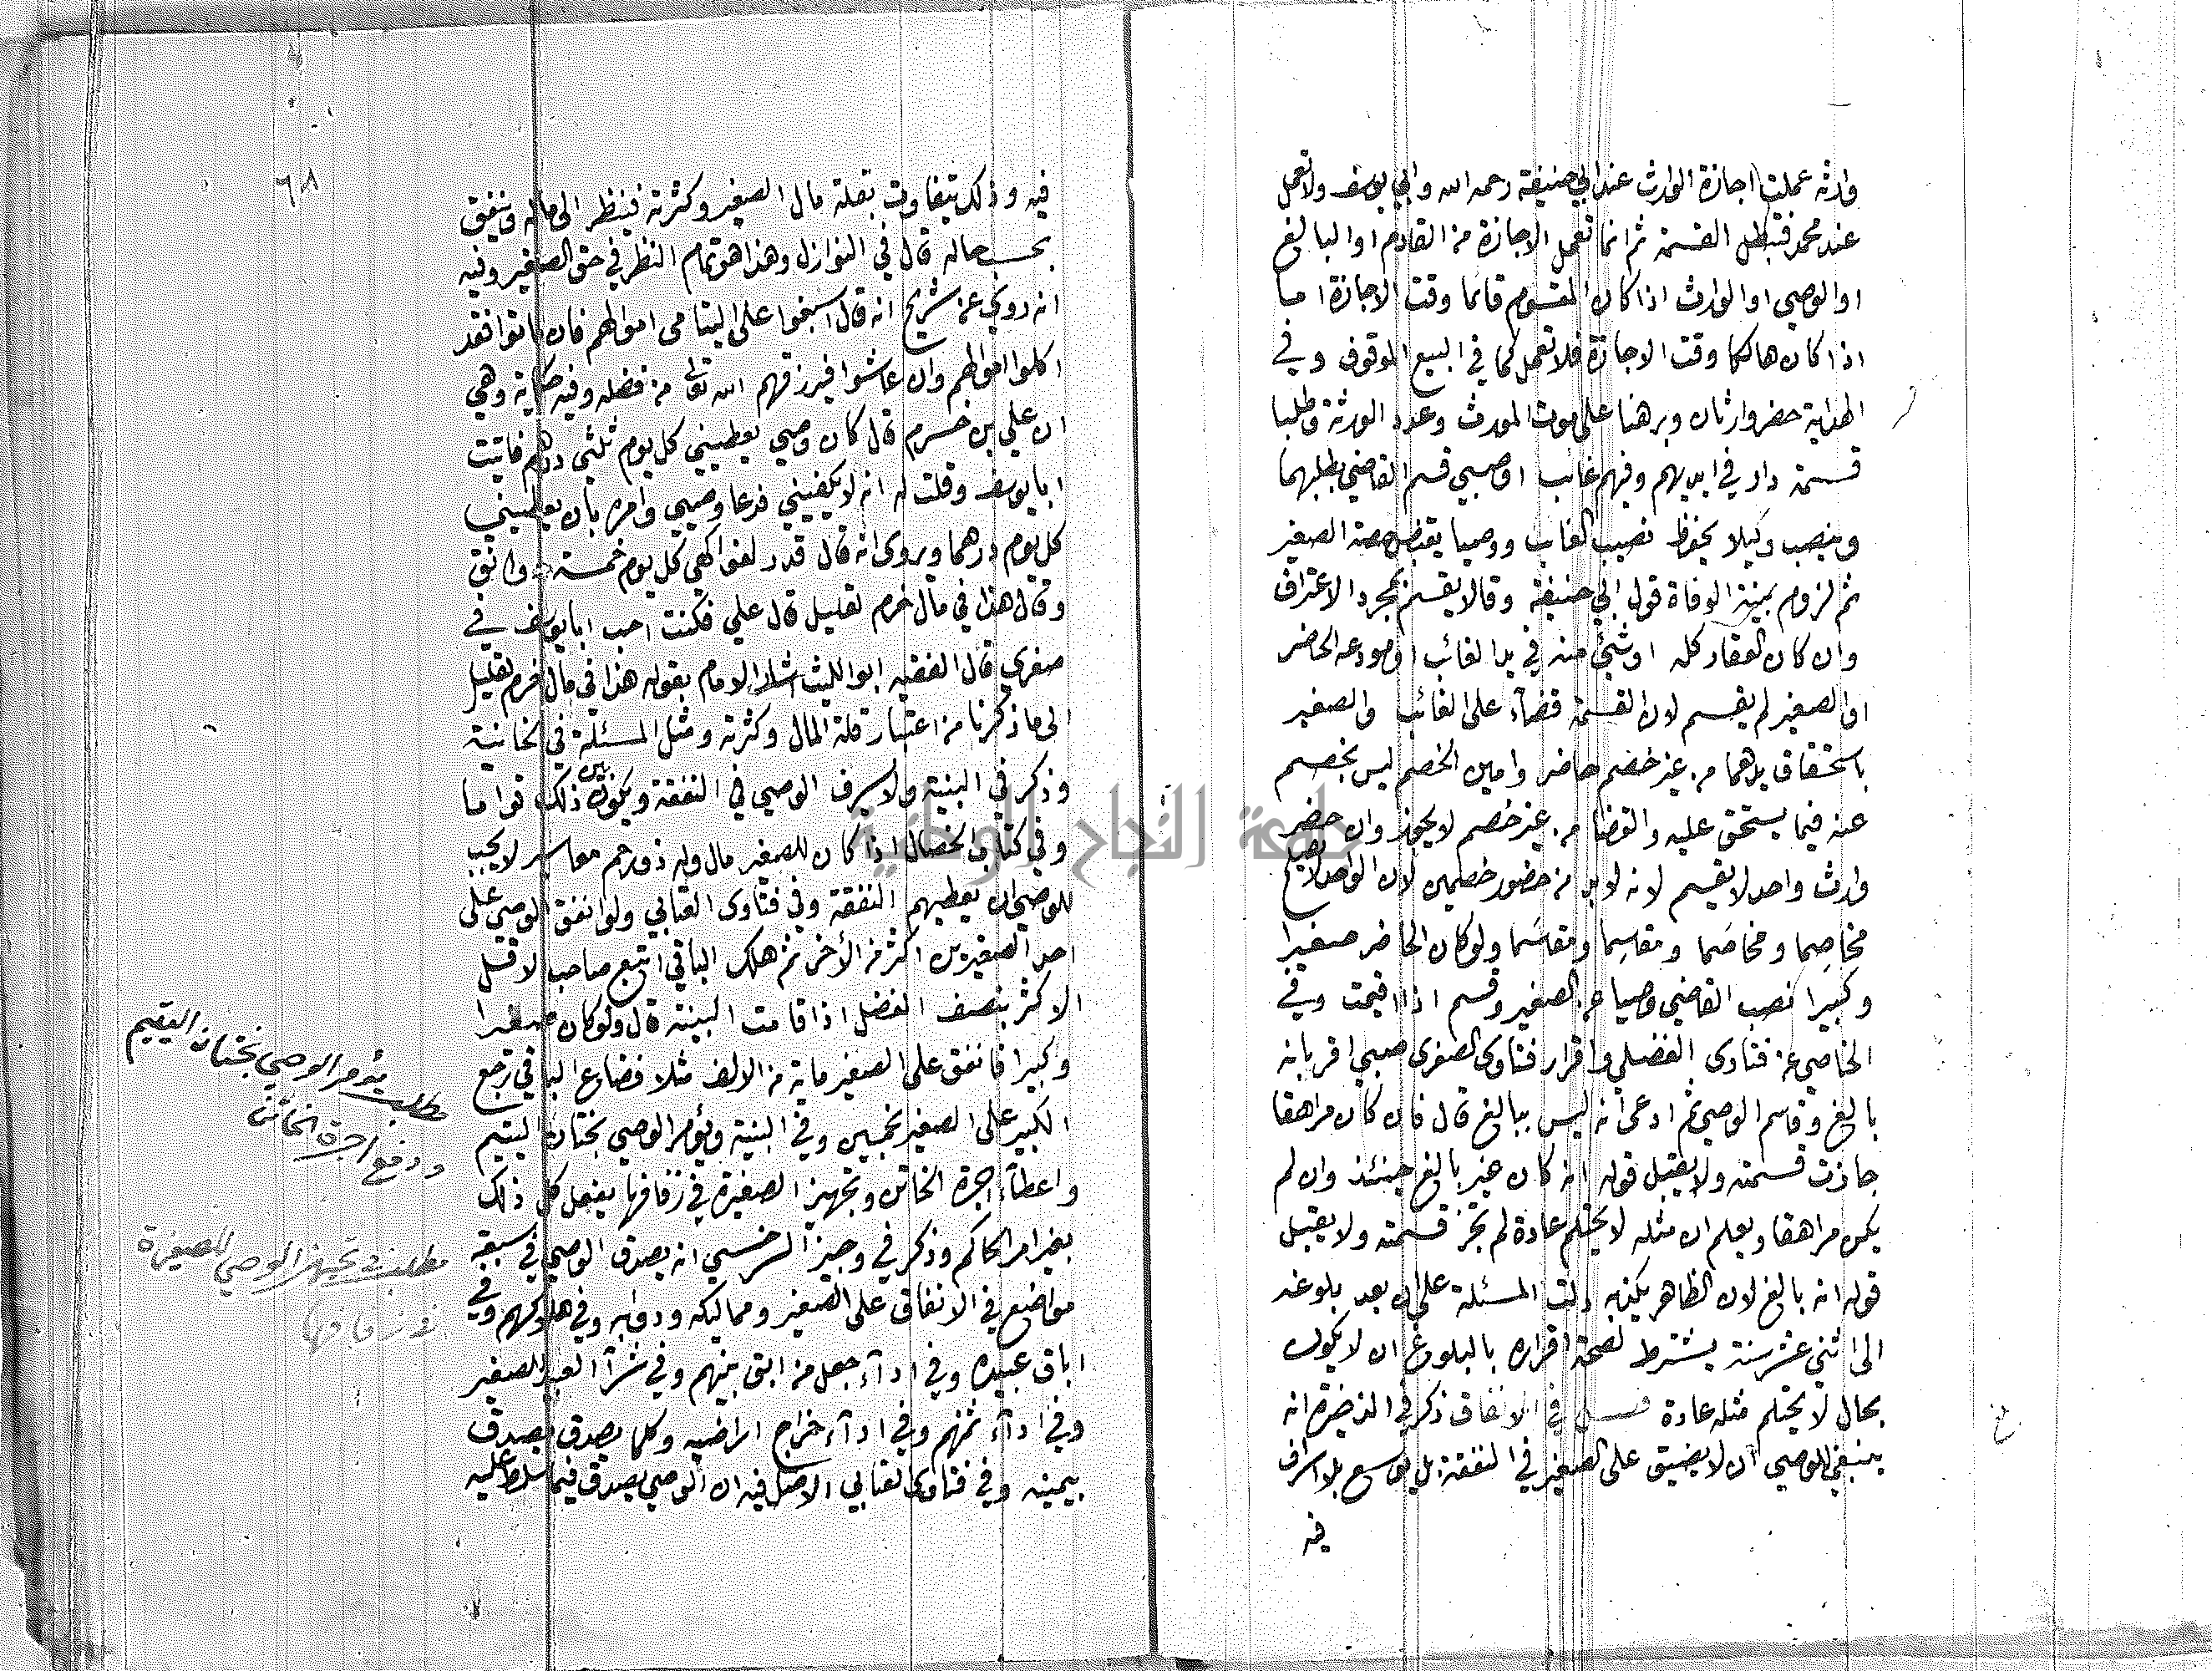 وارثه عملت اجازة الوارث عند ابي حنيفة رحمه الله وابي يوسف ولا تعمل
عند محمد فتبطل القسمة ثم انما تعمل الاجازة من القادم او البالغ
او الوصي او الوارث اذا كان المقسوم قائما وقت الاجازة اما
اذا كان هالكا وقت الاجازة فلا تعمل كما في البيع الموقوف وفي
الهداية حضر وارثان وبرهنا على موت المورث وعدد الورثة وطلبا
قسمة دار في ايديهم وفيهم غائب او صبي قسم القاضي بطلبهما
وينصب وكيلا يحفظ نصيب الغائب ووصيا يقبض حصة الصغير
ثم لزوم بينة الوفاة قول ابي حنيفة وقالا يقسم بمجرد الاعتراف
وان كان العقار كله او شئ منه في يد الغائب او مودعه الحاضر
او الصغير لم يقسم لان القسمة قضآء على الغائب والصغير
باستحقاق يدهما من غير خصم حاضر وامين الخصم ليس بخصم
عنه فيما يستحق عليه والقضا من غير خصم لا يجوز وان حضر
وارث واحد لا يقسم لانه لا بد من حضور خصمين لان الواحد لا يصلح
مخاصِما ومخاصَما ومقاسِما ومقاسَما ولو كان الحاضر صغيرا
وكبيرا نصب القاضي وصيا عن الصغير وقسم اذا اقيمت وفي
الخاصي عن فتاوى الفضلي واقرار فتاوى الصغرى صبي اقر بانه
بالغ وقاسم الوصي ثم ادعى انه ليس ببالغ قال فان كان مراهقا
جازت قسمته ولا يقبل قوله انه كان غير بالغ حينئذ وان لم
يكن مراهقا ويعلم ان مثله لا يحتلم عادة لم تجز قسمته ولا يقبل
قوله انه بالغ لان الظاهر يكذبه دلت المسئلة على ان بعد بلوغه
الى اثني عشر سنة يشترط لصحة اقراره بالبلوغ ان لا يكون
بحال لا يحتلم مثله عادة فصل في الانفاق ذكر في الذخيرة انه
ينبغي للوصي ان لا يضيق على الصغير في النفقة بل يوسع بلا اسراف
فيه
٦٨
فيه وذلك يتفاوت بقلة مال الصغير وكثرته فينظر الى ماله وينفق
بحسب حاله قال في النوازل وهذا هو تمام النظر في حق الصغير وفيه
انه روي عن شريح انه قال اسبغوا على اليتامى اموالهم فان ماتوا فقد
اكلوا اموالهم وان عاشوا فيرزقهم الله تعالى من فضله وفيه حكاية وهي
ان علي بن خسرم قال كان وصي يعطيني كل يوم ثلثي درهم فاتيت
ابا يوسف وقلت له انه لا يكفيني فدعا وصيي وامره بان يعطيني
كل يوم درهما ويروى انه قال قدر لفواكهي كل يوم خمسة دوانيق
وقال هذا في مال خرم لقليل قال علي فكنت احب ابا يوسف في
صغري قال الفقيه ابو الليث اشار الامام بقوله هذا في مال خرم لقليل
الى ما ذكرنا من اعتبار قلة المال وكثرته ومثل المسئلة في الخانية
وذكر في البنية ولا يسرف الوصي في النفقة ويكون بين ذلك قواما
وفي كتاب الخصال اذا كان للصغير مال وله ذو رحم معاسير لا يجب
للوصي ان يعطيهم النفقة وفي فتاوى العتابي ولو انفق الوصي على
احد الصغيرين اكثر من الأخر ثم هلك الباقي اتبع صاحب الاقل
الاكثر بنصف الفضل اذا قامت البينة قال ولو كان صغيرا
وكبيرا فانفق على الصغير ماية من الالف مثلا فضاع الباقي رجع
الكبير على الصغير بخمسين وفي البنية ويؤمر الوصي بختان اليتيم
واعطآء اجرة الخاتن وتجهيز الصغيرة في زفافها يفعل كل ذلك
بغير امر الحاكم وذكر في وجيز السرخسي انه يصدق الوصي في سبعة
مواضع في الانفاق على الصغير ومماليكه ودوابه وفي هلاكهم وفي
اباق عبيده وفي ادآء جعل من ابق منهم وفي شرآ العبد للصغير
وفي ادآء ثمنهم وفي ادآء خراج اراضيه وكلما يصدق يصدق
بيمينه وفي فتاوى العتابي الاصل فيه ان الوصي يصدق فيما سلط عليه
مطلب يؤمر الوصي بختان اليتيم
ودفع اجرة الخاتن
مطلب في تجهيز الوصي للصغيرة
في زفافها
جامعة النجاح الوطنية